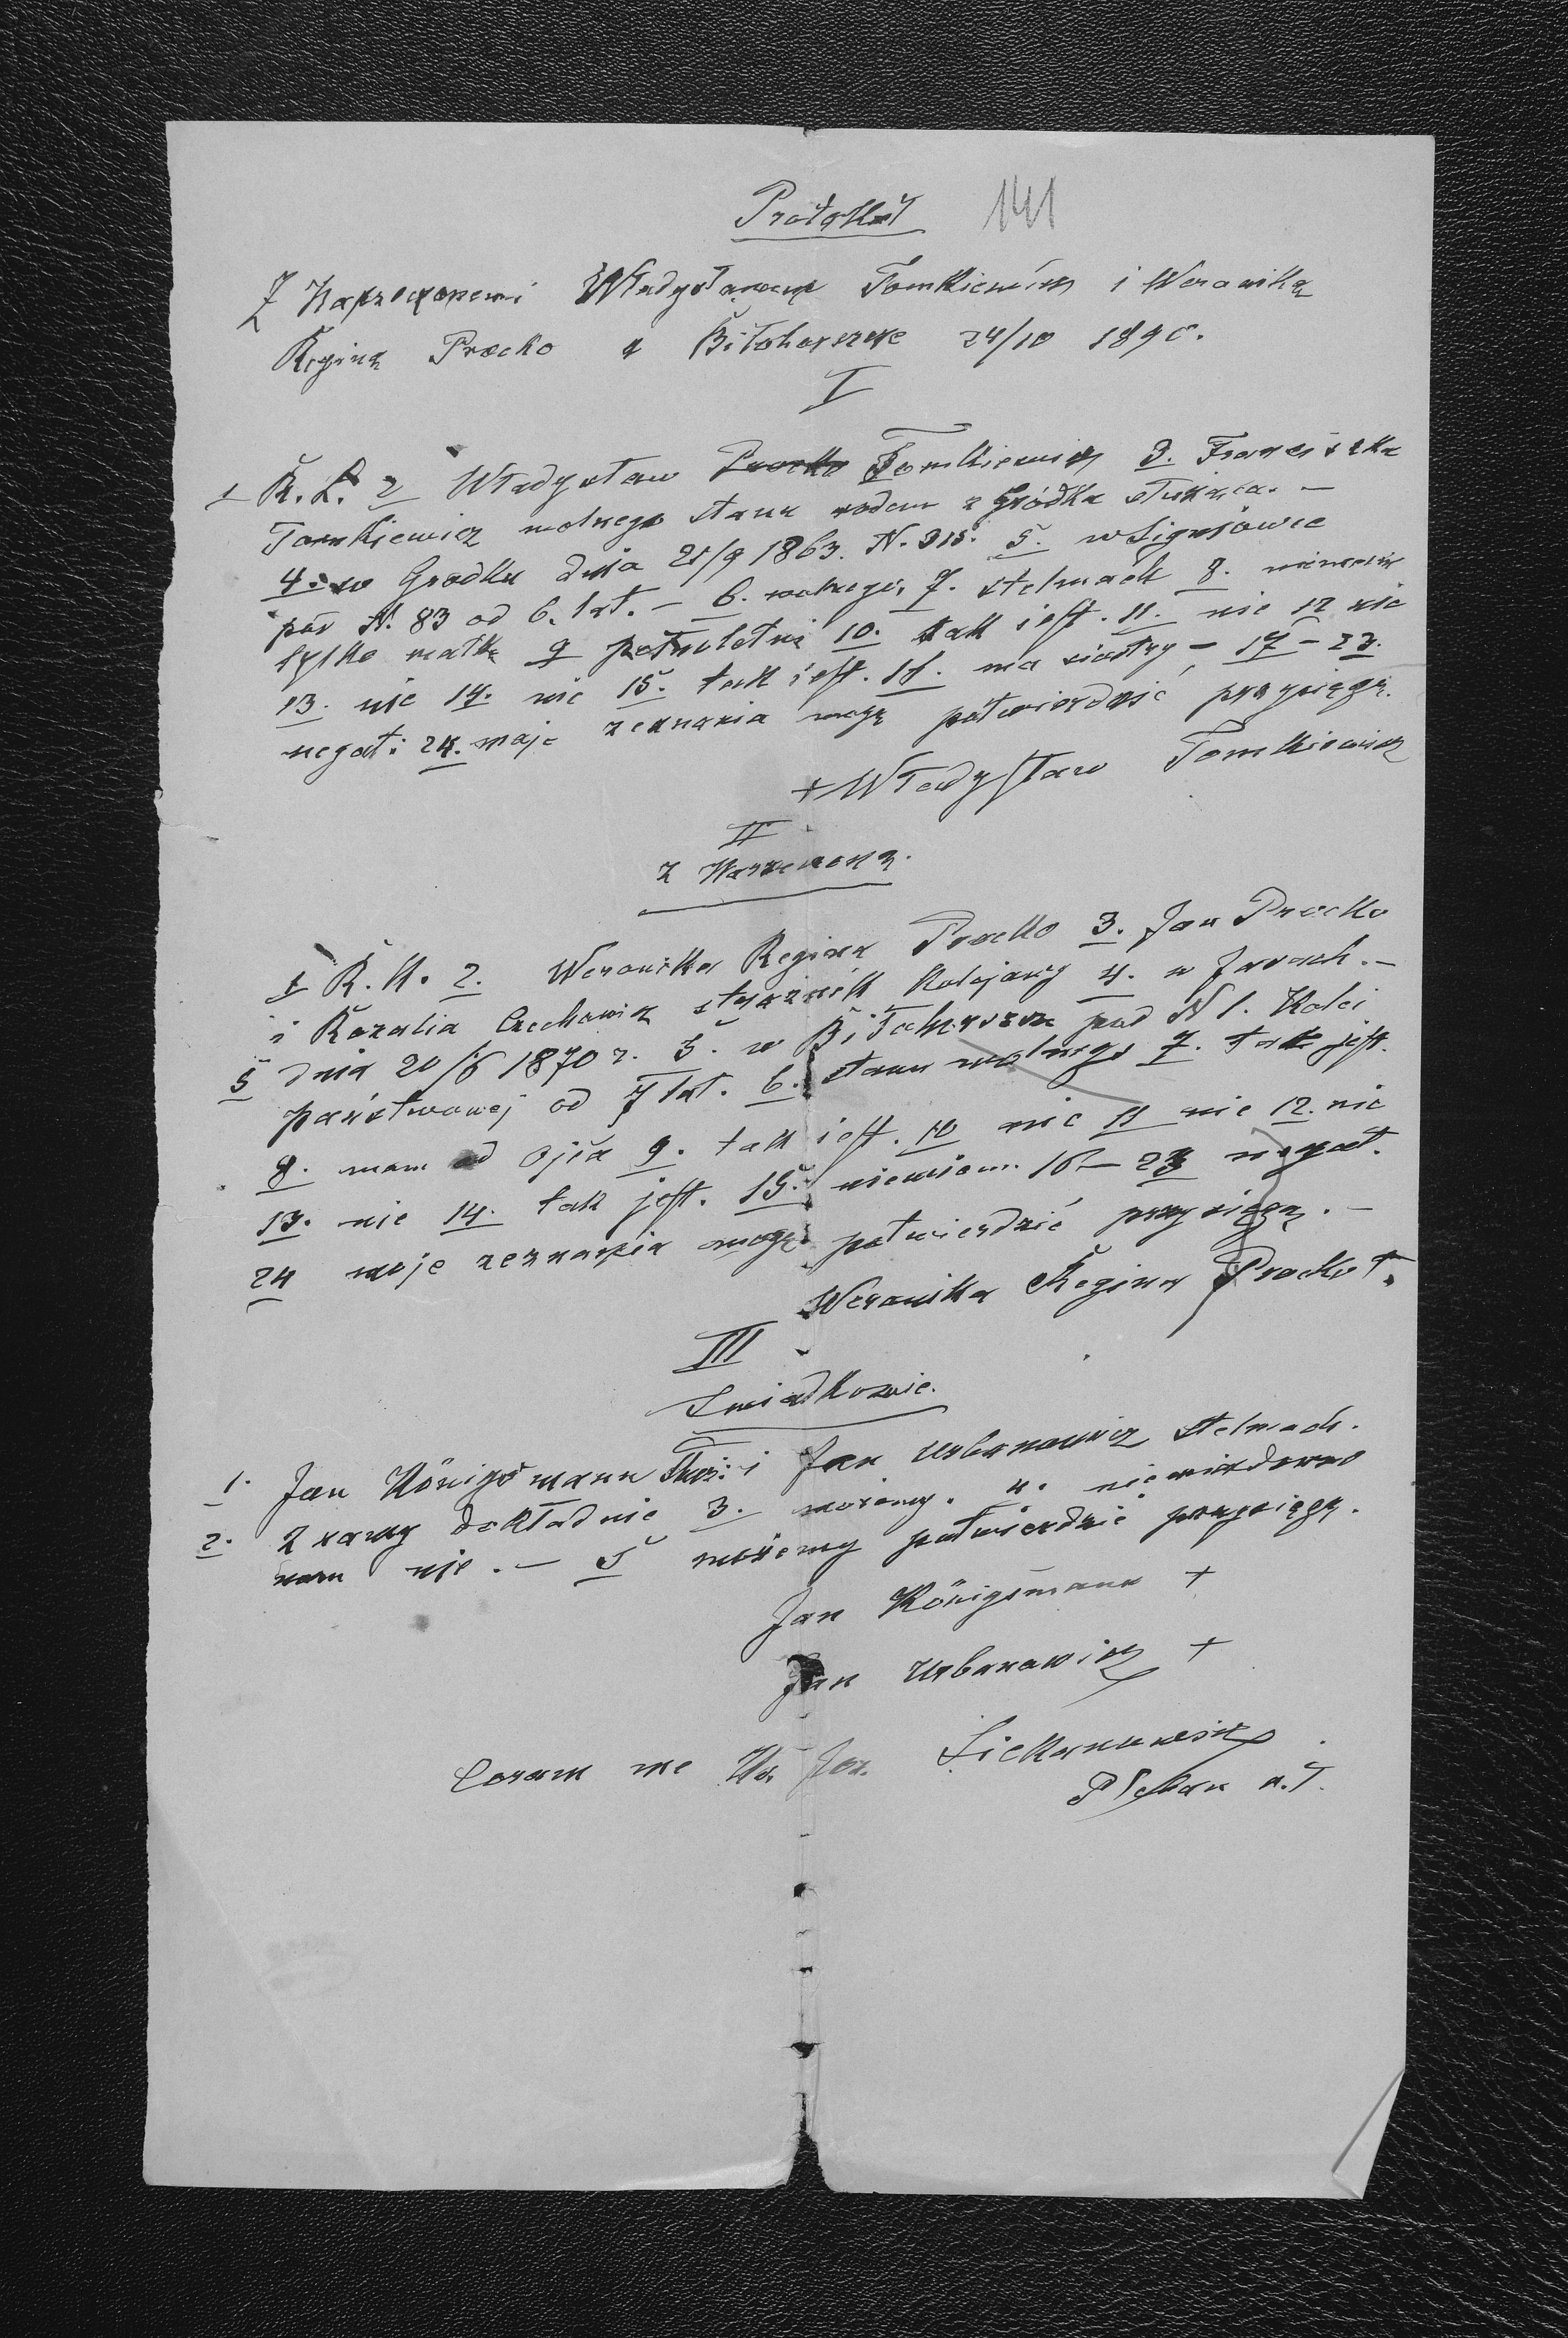 Protokół 141
Z Narzeczonemi Władysławem Tomkiewicz i Weroniką
Reginą Procko w Biłohorszcze 24/10 1890.
I
1 R. L. 2 Władysław Procko Tomkiewicz 3. Franciszka
Tomkiewicz wolnego stanu rodem z Gródka
4. w Gródku dnia 21/9 1863. N. 315. 5. w Signiowce
N. 83 od 6. lat. – 6. wolnego, 7. stelmach 8.
tylko matkę 9 pełnoletni 10. tak jest. 11. nie 12 nie
13. nie 14. nie 15. tak jest. 16. ma siostry – 17 – 23.
negat: 24. moje zeznania mogę potwierdzić przysięgą.
+ Władysław Tomkiewicz
II
Z Narzeczoną.
1 R. K. 2. Weronika Regina Procko 3. Jan Procko
i Rozalia Czechowicz strażnik kolejowy 4. w Janach. –
5 dnia 20/6 1870 r. 5. w Biłohorszcze pod N 1. Kolei
państwowej od 7 lat. 6. stanu wolnego 7. tak jest.
8. mam od ojca 9. tak jest. 10 nie 11 nie 12. nie
13. nie 14. tak jest. 15. niewiem. 16 – 23 negat.
24 moje zeznania mogę potwierdzić przysięgą. –
Weronika Regina Procko +.
III
Swiadkowie.
1. Jan Königsmann i Jan Urbanowicz stelmach.
2. Znamy dokładnie 3. możemy. 4. niewiadomo
nam nie. – 5 możemy potwierdzić przysięgą.
Jan Königsmann +
Jan Urbanowicz +
Coram me
Pleban